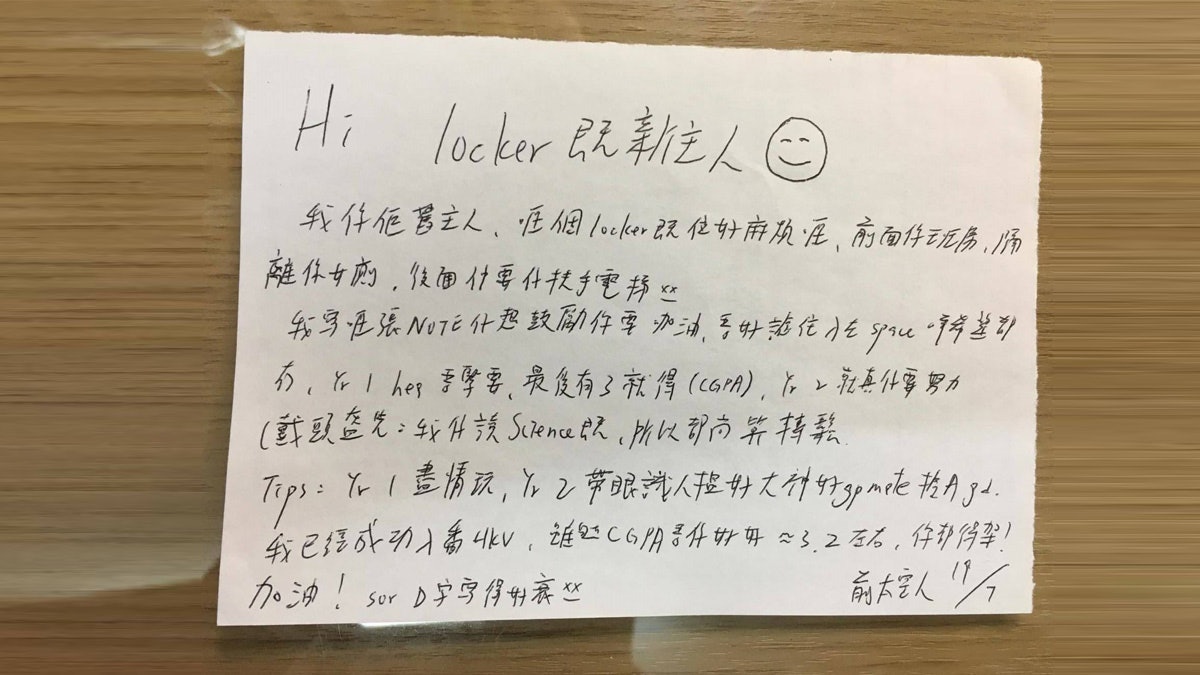 Hi locker既新主人
我係佢舊主人，呢個locker既位好麻煩呢，前面係班房，隔
離係女廁，後面仲要係扶手電梯 xx
我寫呢張NOTE係想鼓勵你要加油，唔好諗住入左space 咩希望都
冇，Yr 1 hea 唔緊要，最後有3就得(CGPA)，Yr 2 就真係要努力
(戴頭盔先：我係讀Science既，所以都尚算輕鬆
Tips: Yr 1 盡情玩，Yr 2 帶眼識人搵好大神好gpmate 拎A gd.
我已經成功入番HKU，雖然CGPA唔係好好 ≈3.2左右，你都得架!
加油! sor D字寫得好衰 xx
前太空人 19/7